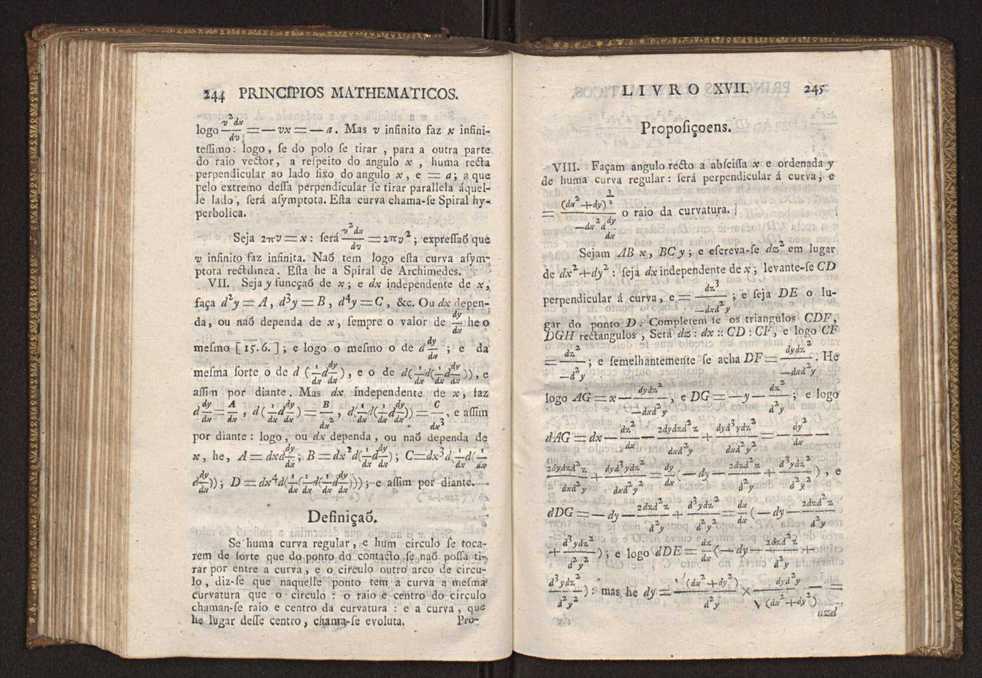 244 PRINCIPIOS MATHEMATICOS.
logo v²dx/dv = — vx = — a. Mas v infinito faz x infini-
tessimo: logo, se do polo se tirar, para a outra parte
do raio vector, a respeito do angulo x, huma recta
perpendicular ao lado fixo do angulo x, e = a; a que
pelo extremo dessa perpendicular se tirar parallela áquel-
le lado, será asymptota. Esta curva chama-se Spiral hy-
perbolica.
Seja 2πv = x: será v²dx/dv = 2πv²; expressaõ que
v infinito faz infinita. Naõ tem logo esta curva asym-
ptota rectilinea. Esta he a Spiral de Archimedes.
VII. Seja y funcçaõ de x; e dx independente de x,
faça d²y = A, d³y = B, d⁴y = C, &c. Ou dx depen-
da, ou naõ dependa de x, sempre o valor de dy/dx he o
mesmo [15.6.]; e logo o mesmo o de d dy/dx; e da
mesma sorte o de d (1/dx d dy/dx), e o de d(1/dx d(1/dx d dy/dx)), e
assim por diante. Mas dx independente de x, faz
d dy/dx = A/dx, d(1/dx d dy/dx) = B/dx², d(1/dx d(1/dx d dy/dx)) = C/dx³, e assim
por diante: logo, ou dx dependa, ou naõ dependa de
x, he, A = dxd dy/dx; B = dx²d(1/dx d dy/dx); C = dx³d(1/dx d(1/dx
d dy/dx)); D = dx⁴d(1/dx d(1/dx d(1/dx d dy/dx))); e assim por diante.
Definiçaõ.
Se huma curva regular, e hum circulo se toca-
rem de sorte que do ponto do contacto se naõ possa ti-
rar por entre a curva, e o circulo outro arco de circu-
lo, diz-se que naquelle ponto tem a curva a mesma
curvatura que o circulo: o raio e centro do circulo
chaman-se raio e centro da curvatura: e a curva, que
he lugar desse centro, chama-se evoluta. Pro-
LIVRO XVII. 245
Proposiçoens.
VIII. Façam angulo recto a abscissa x e ordenada y
de huma curva regular: será perpendicular á curva, e
= (dx²+dy²)^(3/2) / —dx²d dy/dx o raio da curvatura.
Sejam AB x, BC y; e escreva-se dz² em lugar
de dx²+dy²: seja dx independente de x; levante-se CD
perpendicular á curva, e = dz³/—dxd²y; e seja DE o lu-
gar do ponto D. Completem se os triangulos CDF,
DGH rectangulos, Será dz: dx :: CD: CF, e logo CF
= dz²/—d²y; e semelhantemente se acha DF = dydz²/—dxd²y. He
logo AG = x — dydz²/—dxd²y, e DG = — y — dz²/d²y; e logo
dAG = dx — dz²/dx — 2dydzd²z/dxd²y + dyd³ydz²/dxd²y² = — dy²/dx —
2dydzd²z/dxd²y + dyd³ydz²/dxd²y² = dy/dx (— dy — 2dzd²z/d²y + d³ydz²/d²y²), e
dDG = — dy — 2dzd²z/d²y + d³ydz²/d²y² = dx/dx (— dy — 2dzd²z/d²y
+ d³ydz²/d²y²); e logo dDE = dz/dx (— dy — 2dzd²z/d²y +
d³ydz²/d²y²): mas he dy = √(dx²+dy²)/d²y × dyd²y/√(dx²+dy²) =